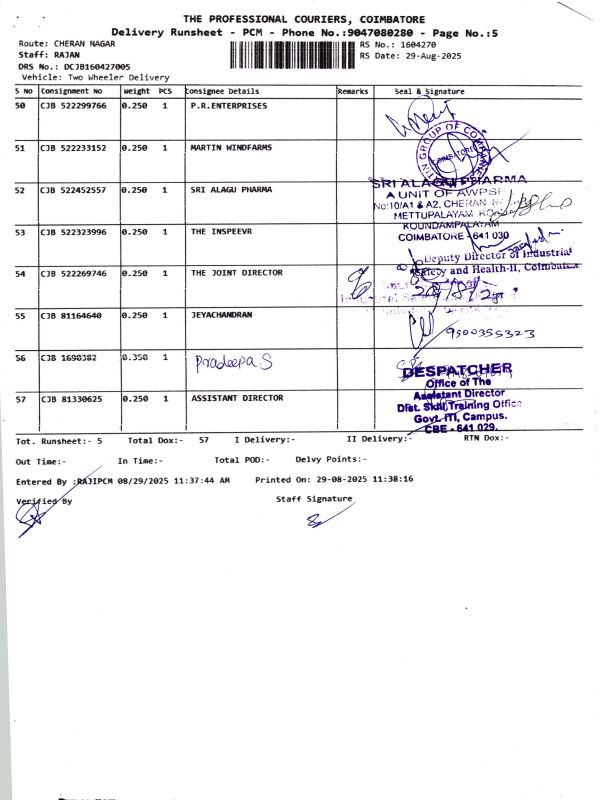 THE PROFESSIONAL COURIERS, COIMBATORE
Delivery Runsheet - PCM - Phone No.:9047080280 - Page No.:5
Route: CHERAN NAGAR
RS No.: 1604270
Staff: RAJAN
RS Date: 29-Aug-2025
DRS No.: DCJB160427005
Vehicle: Two Wheeler Delivery
S No Consignment No Weight PCS Consignee Details Remarks Seal & Signature
50 CJB 522299766 0.250 1 P.R.ENTERPRISES
51 CJB 522233152 0.250 1 MARTIN WINDFARMS
GROUP OF COMPANIES
COIMBATORE
52 CJB 522452557 0.250 1 SRI ALAGU PHARMA
SRI ALAGU PHARMA
A UNIT OF AWPSF
No:10/A1 & A2, CHERAN
METTUPALAYAM
KOUNDAMPALAYAM
COIMBATORE - 641 030
53 CJB 522323996 0.250 1 THE INSPEEVR
Deputy Director of Industrial
Safety and Health-II, Coimbatore
54 CJB 522269746 0.250 1 THE JOINT DIRECTOR
55 CJB 81164640 0.250 1 JEYACHANDRAN
9500355323
56 CJB 1690382 0.350 1 Pradeepa S
57 CJB 81330625 0.250 1 ASSISTANT DIRECTOR
DESPATCHER
Office of The
Assistant Director
Dist. Skill Training Office
Govt. ITI, Campus.
CBE - 641 029.
Tot. Runsheet:- 5 Total Dox:- 57 I Delivery:- II Delivery:- RTN Dox:-
Out Time:- In Time:- Total POD:- Delvy Points:-
Entered By :RAJIPCM 08/29/2025 11:37:44 AM Printed On: 29-08-2025 11:38:16
Verified By Staff Signature